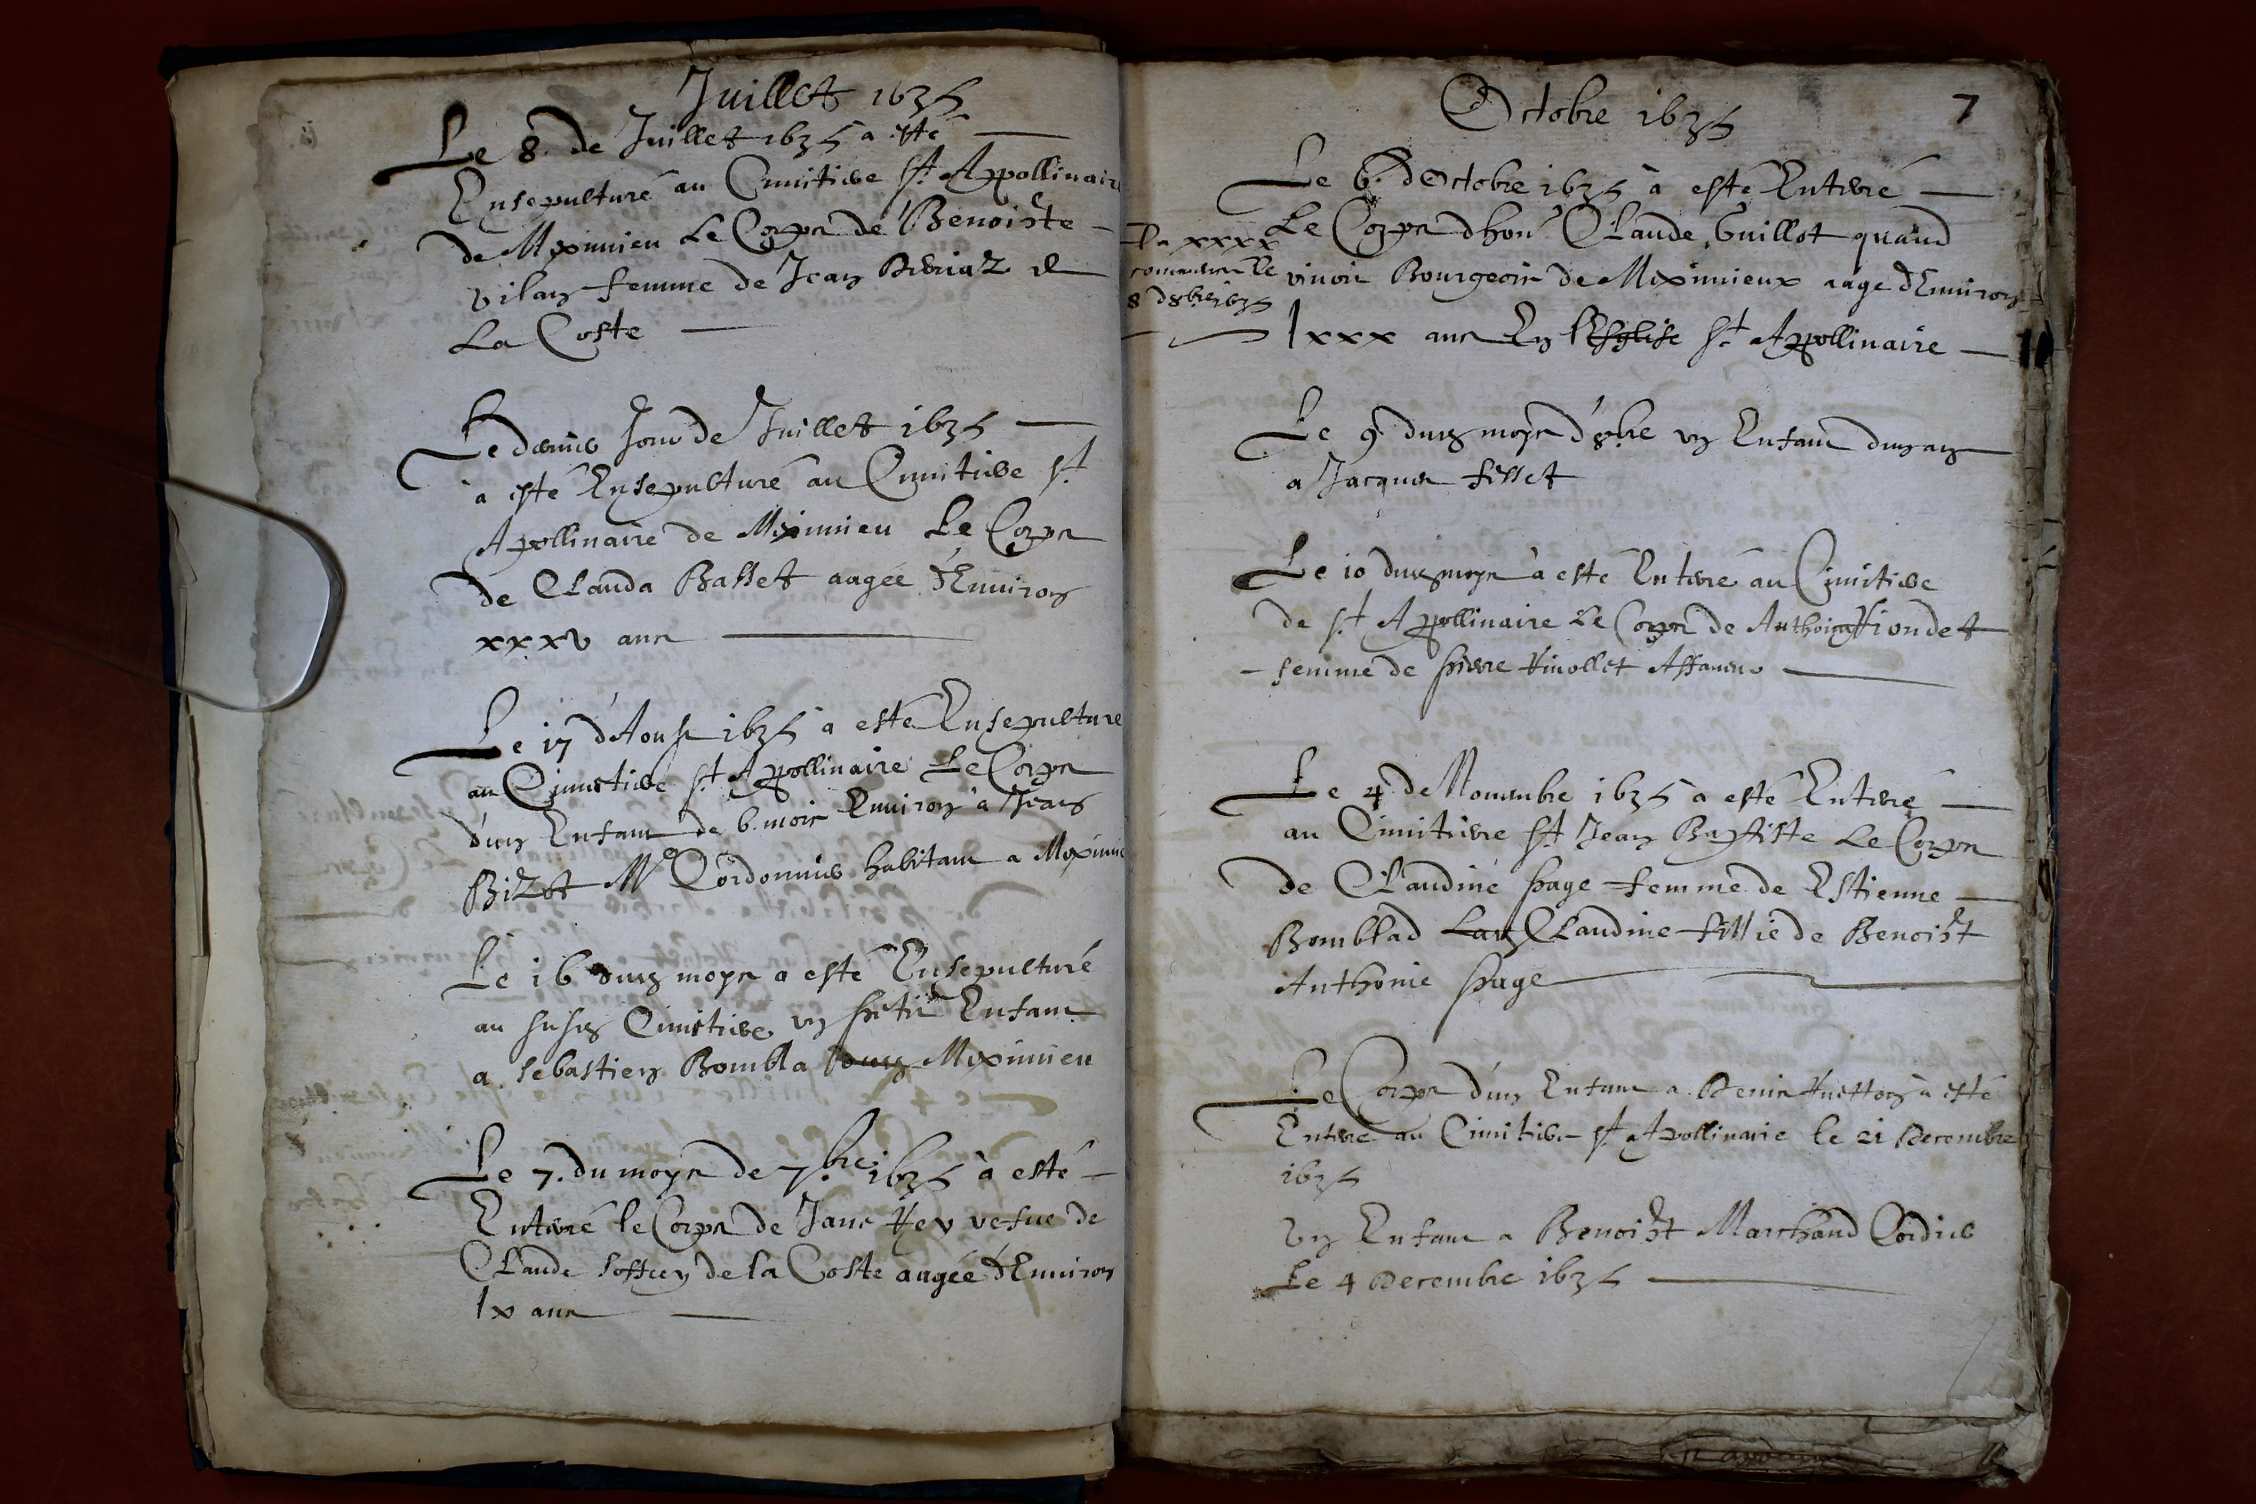 Juillet 1635
Le 8. de Juillet 1635 a esté
Ensepulturé au Cimitiere St. Appollinaire
de Meximieu Le Corps de Benoiste
vilan femme de Jean de
La Coste
Le dernier Jour de Juillet 1635
a esté Ensepulturé au Cimitiere St.
Apollinaire de Meximieu Le Corps
de Clauda Basset aagée d'Environ
xxxv ans
Le 17 d'Aoust 1635 a esté Ensepulturé
au Cimetiere St. Appollinaire Le Corps
d'un Enfant de 6. mois Environ a Jean
Bizot Me Cordonnier habitant a Meximie
Le 16 dud moys a esté Ensepulturé
au susd Cimetiere un petit Enfant
a Sebastien Bombla Meximieu
Le 7. du moys de 7.bre 1635 à esté
Enterré le Corps de Jane Rey vefve de
Claude Soffrey de la Coste aagée d'Environ
lx ans
7
Octobre 1635
Le 6. d'Octobre 1635 à esté Enterré
Le Corps d'hon. Claude Guillot quand
vivoit Bourgeois de Meximieux aagé d'Environ
lxxx ans En l'Esglise St. Appollinaire
La xxxx
comancer le
8 d8bre 1635
Le 9. dud moys d'8.bre un Enfant d'un an
a Jacques fisset
Le 10 dud moys à esté Enterré au Cimitiere
de St. Appollinaire Le Corps de Anthoina Riondet
femme de Pierre Rivollet Affaneur
Le 4. de Novembre 1635 à esté Enterré
au Cimitiere St. Jean Baptiste Le Corps
de Claudine Page femme de Estienne
Bomblad Lad Claudine fillie de Benoist
Anthonie Page
Le Corps d'un Enfant a Denis à esté
Enterré au Cimitiere St. Apollinaire le 21 Decembre
1635
Un Enfant a Benoist Marchand Cordier
Le 4 Decembre 1635